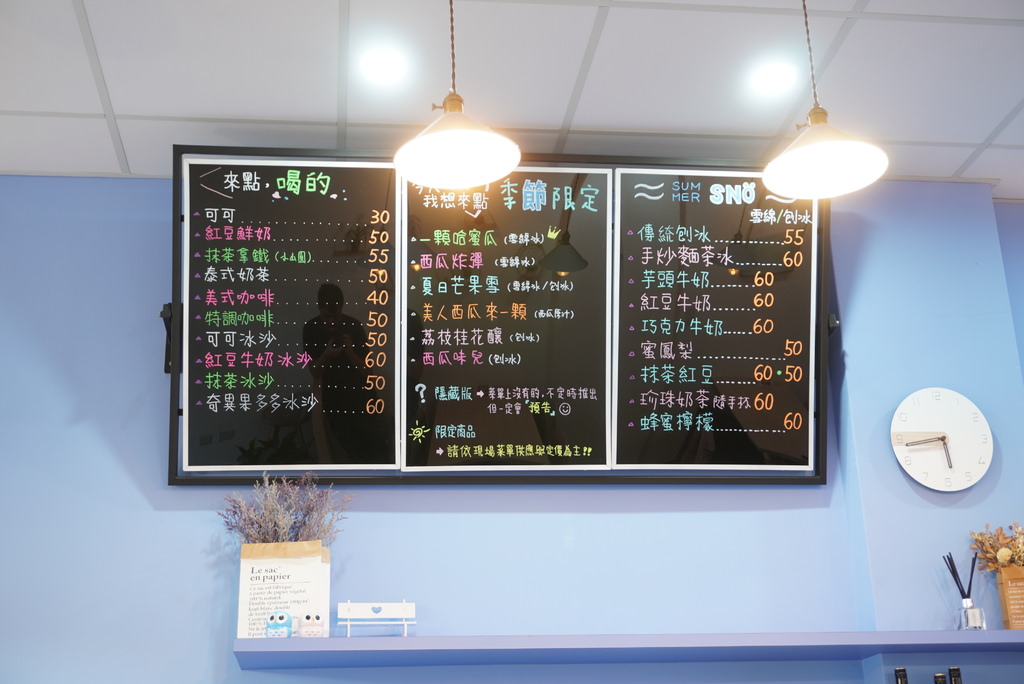 來點, 喝的
可可 30
紅豆鮮奶 50
抹茶拿鐵(小山園) 55
泰式奶茶 50
美式咖啡 40
特調咖啡 50
可可冰沙 50
紅豆牛奶冰沙 60
抹茶冰沙 50
奇異果多多冰沙 60
我想來點 季節限定
一顆哈蜜瓜(雪綿冰)
西瓜炸彈(雪綿冰)
夏日芒果雪(雪綿冰/刨冰)
美人西瓜來一顆(西瓜原汁)
荔枝桂花釀(刨冰)
西瓜味兒(刨冰)
? 隱藏版 → 菜單上沒有的,不定時推出
但一定會『預告』☺
限定商品
→ 請依現場菜單供應與定價為主!!
SUMMER SNÖ
雪綿/刨冰
傳統刨冰 55
手炒麵茶冰 60
芋頭牛奶 60
紅豆牛奶 60
巧克力牛奶 60
蜜鳳梨 50
抹茶紅豆 60•50
珍珠奶茶隨手杯 60
蜂蜜檸檬 60
Le sac
en papier